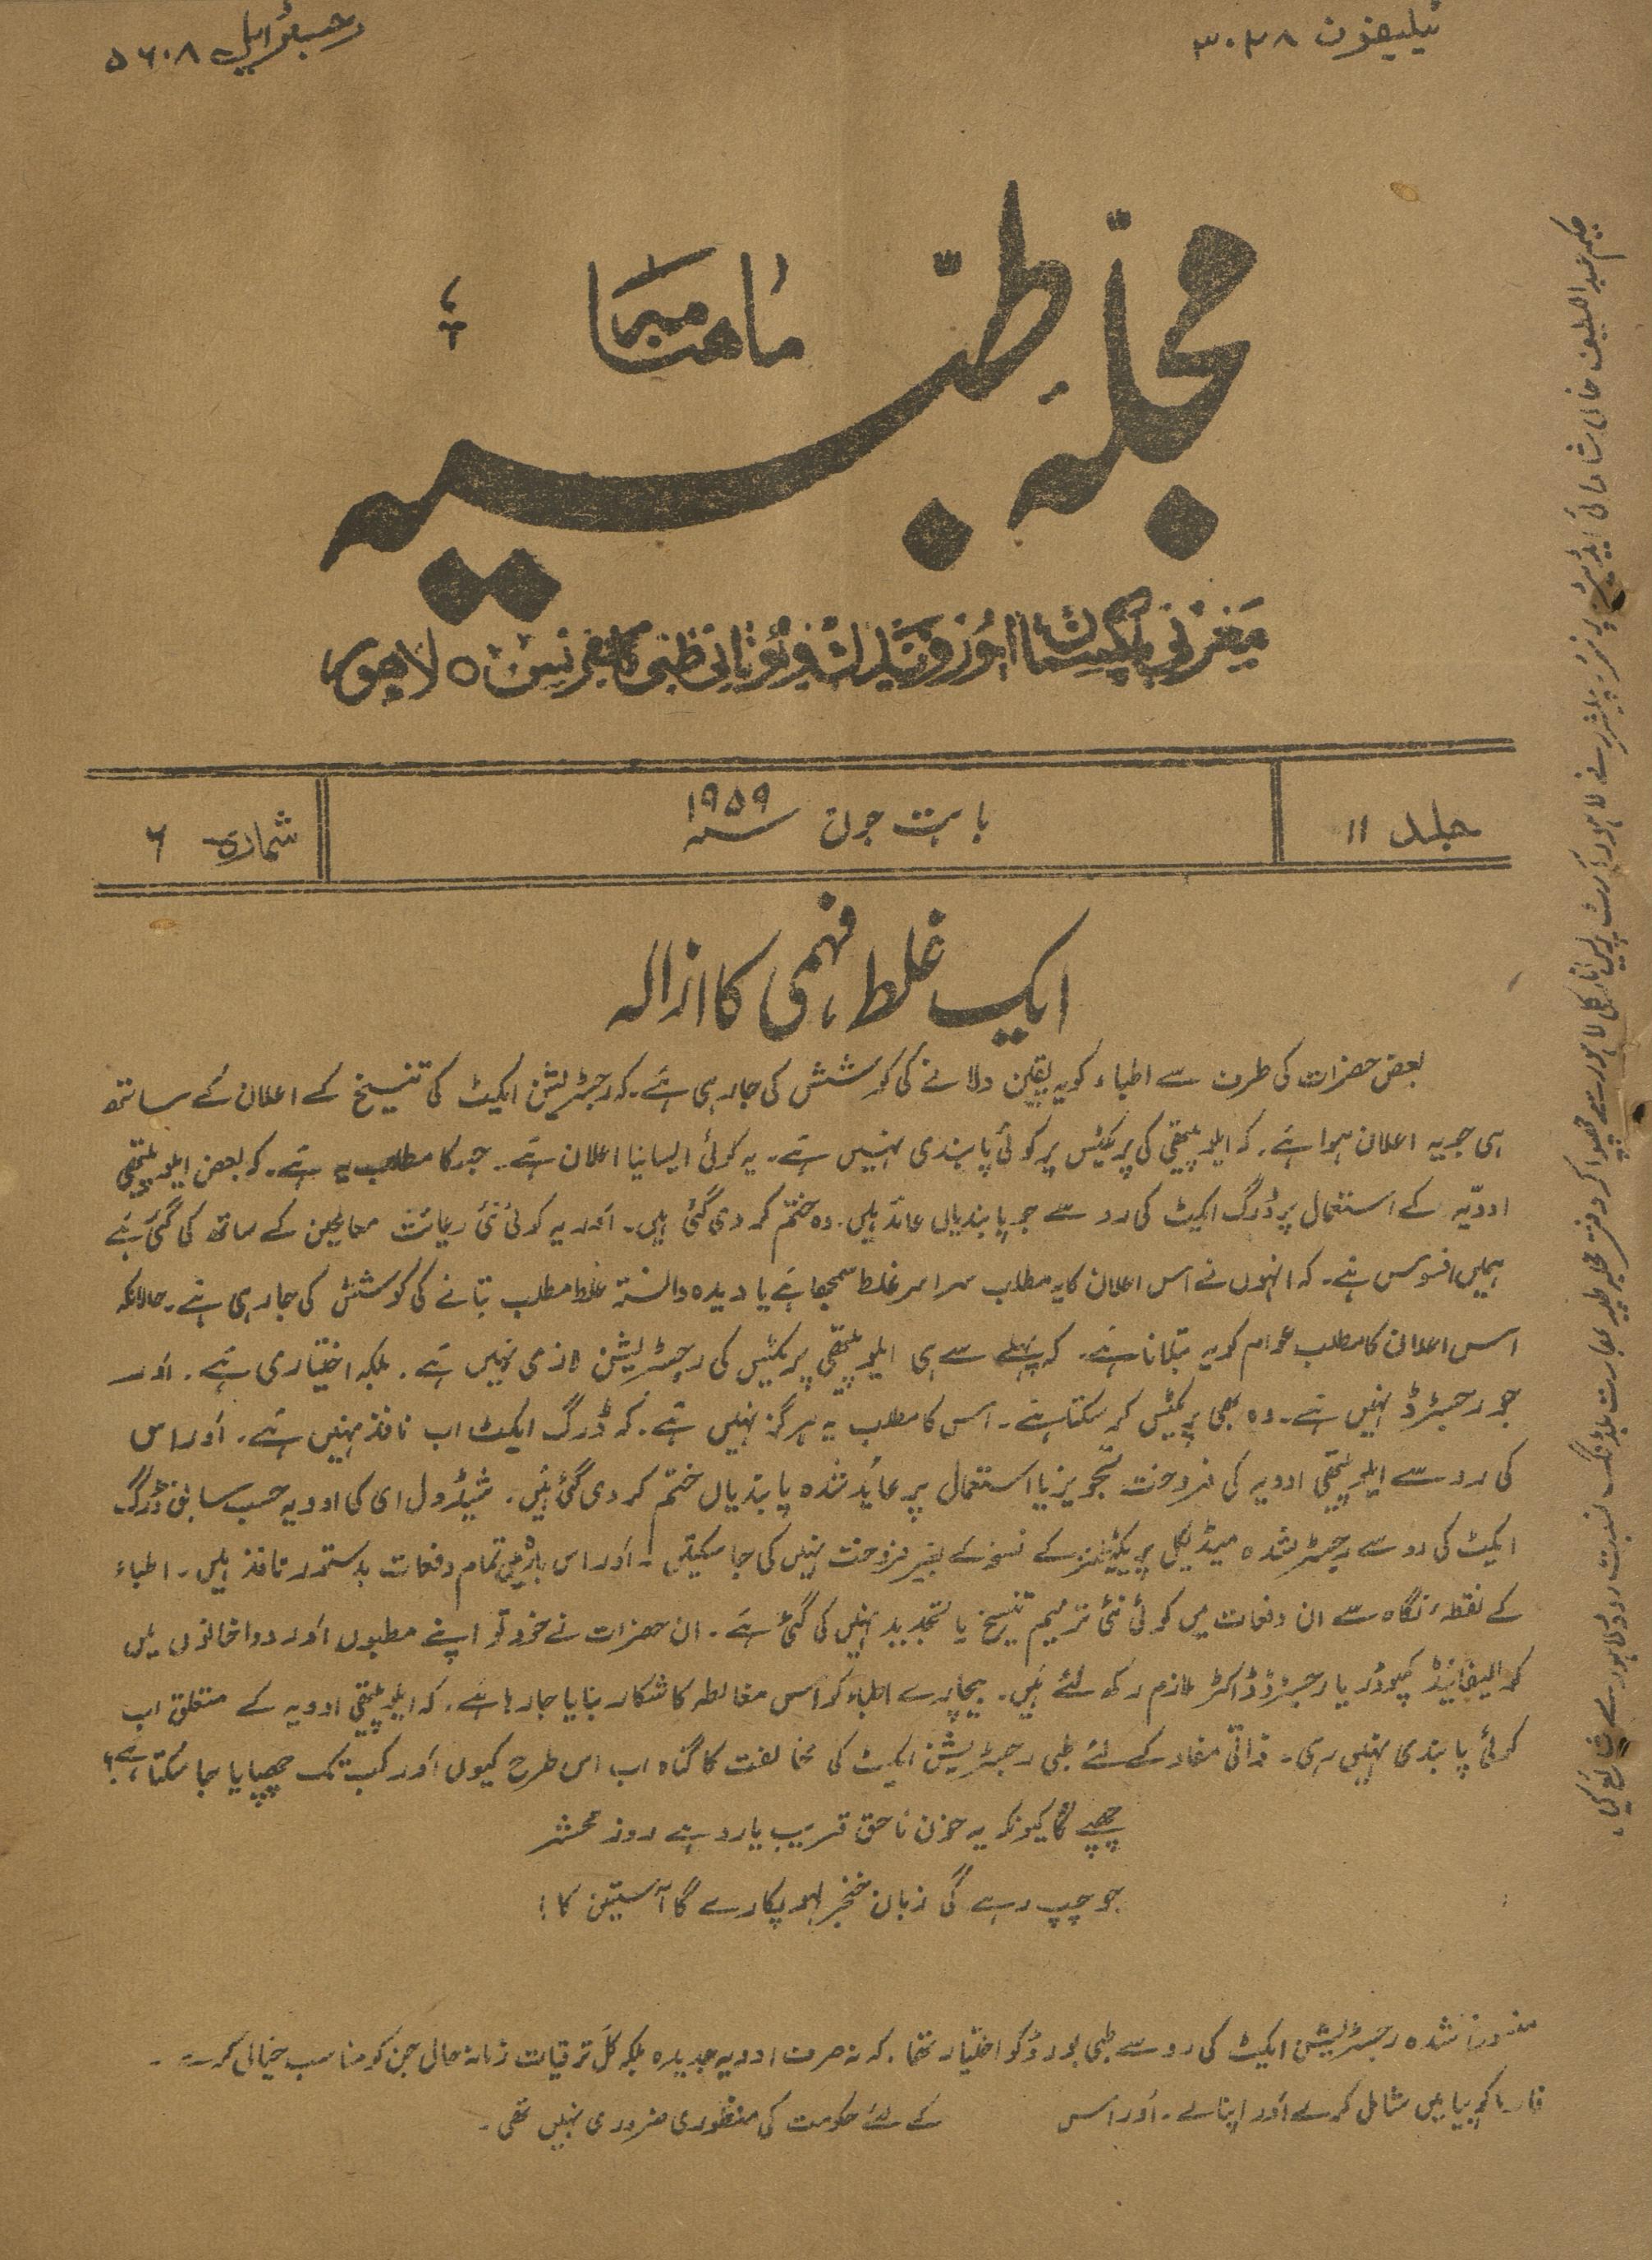 ٹیلیفون ۳۰۲۸
رجسٹرڈ ایل ۵۶۰۸
ماھنامہ
مجلہ طبیہ
مغربی پاکستان ایورویدک اینڈ یونانی طبی کانفرنس ٥ لاھور
جلد ۱۱
بابت جون ۱۹۵۹
شمارہ ۶
ایک غلط فہمی کا ازالہ
بعض حضرات کی طرف سے اطباء کو یہ یقین دلانے کی کوشش کی جا رہی ہے۔ کہ رجسٹریشن ایکٹ کی تنسیخ کے اعلان کے ساتھ
ہی جو یہ اعلان ہوا ہے۔ کہ ایلوپیتھی کی پریکٹس پر کوئی پابندی نہیں ہے۔ یہ کوئی ایسا نیا اعلان ہے۔ جس کا مطلب یہ ہے۔ کہ بعض ایلوپیتھی
ادویّہ کے استعمال پر ڈرگ ایکٹ کی رو سے جو پابندیاں عائد ہیں۔ وہ ختم کر دی گئی ہیں۔ اور یہ کوئی نئی رعائت معالجین کے ساتھ کی گئی ہے
ہمیں افسوس ہے۔ کہ انہوں نے اس اعلان کا یہ مطلب سراسر غلط سمجھا ہے یا دیدہ دانستہ غلط مطلب بتانے کی کوشش کی جا رہی ہے۔ حالانکہ
اس اعلان کا مطلب عوام کو یہ بتلانا ہے۔ کہ پہلے سے ہی ایلوپیتھی پریکٹس کی رجسٹریشن لازمی نہیں ہے۔ بلکہ اختیاری ہے۔ اور
جو رجسٹرڈ نہیں ہے۔ وہ بھی پریکٹس کر سکتا ہے۔ اس کا مطلب یہ ہرگز نہیں ہے۔ کہ ڈرگ ایکٹ اب نافذ نہیں ہے۔ اور اس
کی رو سے ایلوپیتھی ادویہ کی فروخت تجویز یا استعمال پر عائد شدہ پابندیاں ختم کر دی گئی ہیں۔ شیڈول ای کی ادویہ حسب سابق ڈرگ
ایکٹ کی رو سے رجسٹر شدہ میڈیکل پریکٹیشنرز کے نسخہ کے بغیر فروخت نہیں کی جا سکتیں۔ اور اس بارہ میں تمام دفعات بدستور نافذ ہیں۔ اطباء
کے نقطہء نگاہ سے ان دفعات میں کوئی نئی ترمیم تنسیخ یا تجدید نہیں کی گئی ہے۔ ان حضرات نے خود تو اپنے مطبوں اور دواخانوں میں
کوالیفائیڈ کمپوڈر یا رجسٹرڈ ڈاکٹر ملازم رکھ لئے ہیں۔ بیچارے اطباء کو اس مغالطہ کا شکار بنایا جا رہا ہے۔ کہ ایلوپیتھی ادویہ کے متعلق اب
کوئی پابندی نہیں رہی۔ ذاتی مفاد کے لئے طبی رجسٹریشن ایکٹ کی مخالفت کا گناہ اب اس طرح کیوں اور کب تک چھپایا جا سکتا ہے؟
چھپے گا کیونکہ یہ خون ناحق قریب یارو ہے روز محشر
جو چپ رہے گی زبان خنجر لہو پکارے گا آستین کا!
شدہ رجسٹریشن ایکٹ کی رو سے طبی بورڈ کو اختیار تھا۔ کہ نہ صرف ادویہ جدیدہ بلکہ کل ترقیات زمانہ حال جن کو مناسب خیال کرے۔
فارماکوپیا میں شامل کرے اور اپنالے۔ اور اس کے لئے حکومت کی منظوری ضروری نہیں تھی۔
حکیم عبداللطیف خان ایڈیٹر پرنٹر پبلشر نے لاہور آرٹ پریس انارکلی لاہور سے چھپوا کر دفتر مجلہ طبیہ بھارت بلڈنگ نسبت روڈ لاہور سے شائع کیا۔